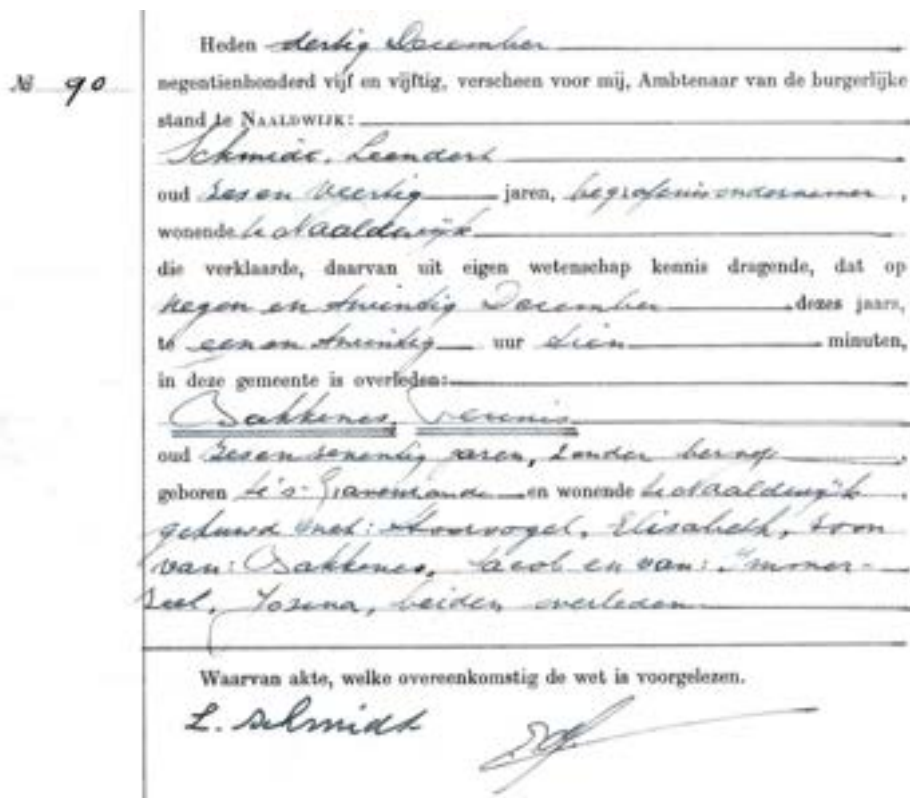 Heden dertig December
№ 90
negentienhonderd vijf en vijftig, verscheen voor mij, Ambtenaar van de burgerlijke
stand te NAALDWIJK:
Schmidt, Leendert
oud zes en veertig jaren, begrafenisondernemer,
wonende te Naaldwijk
die verklaarde, daarvan uit eigen wetenschap kennis dragende, dat op
negen en twintig December dezes jaars,
te een en twintig uur tien minuten,
in deze gemeente is overleden:
Bakkenes,
oud zes en zeventig jaren, zonder beroep,
geboren te 's-Gravenzande en wonende te Naaldwijk,
gehuwd met: Elisabeth, zoon
van: Bakkenes, Jacob en van: Immer-
zeel, Josina, beiden overleden
Waarvan akte, welke overeenkomstig de wet is voorgelezen.
L. Schmidt